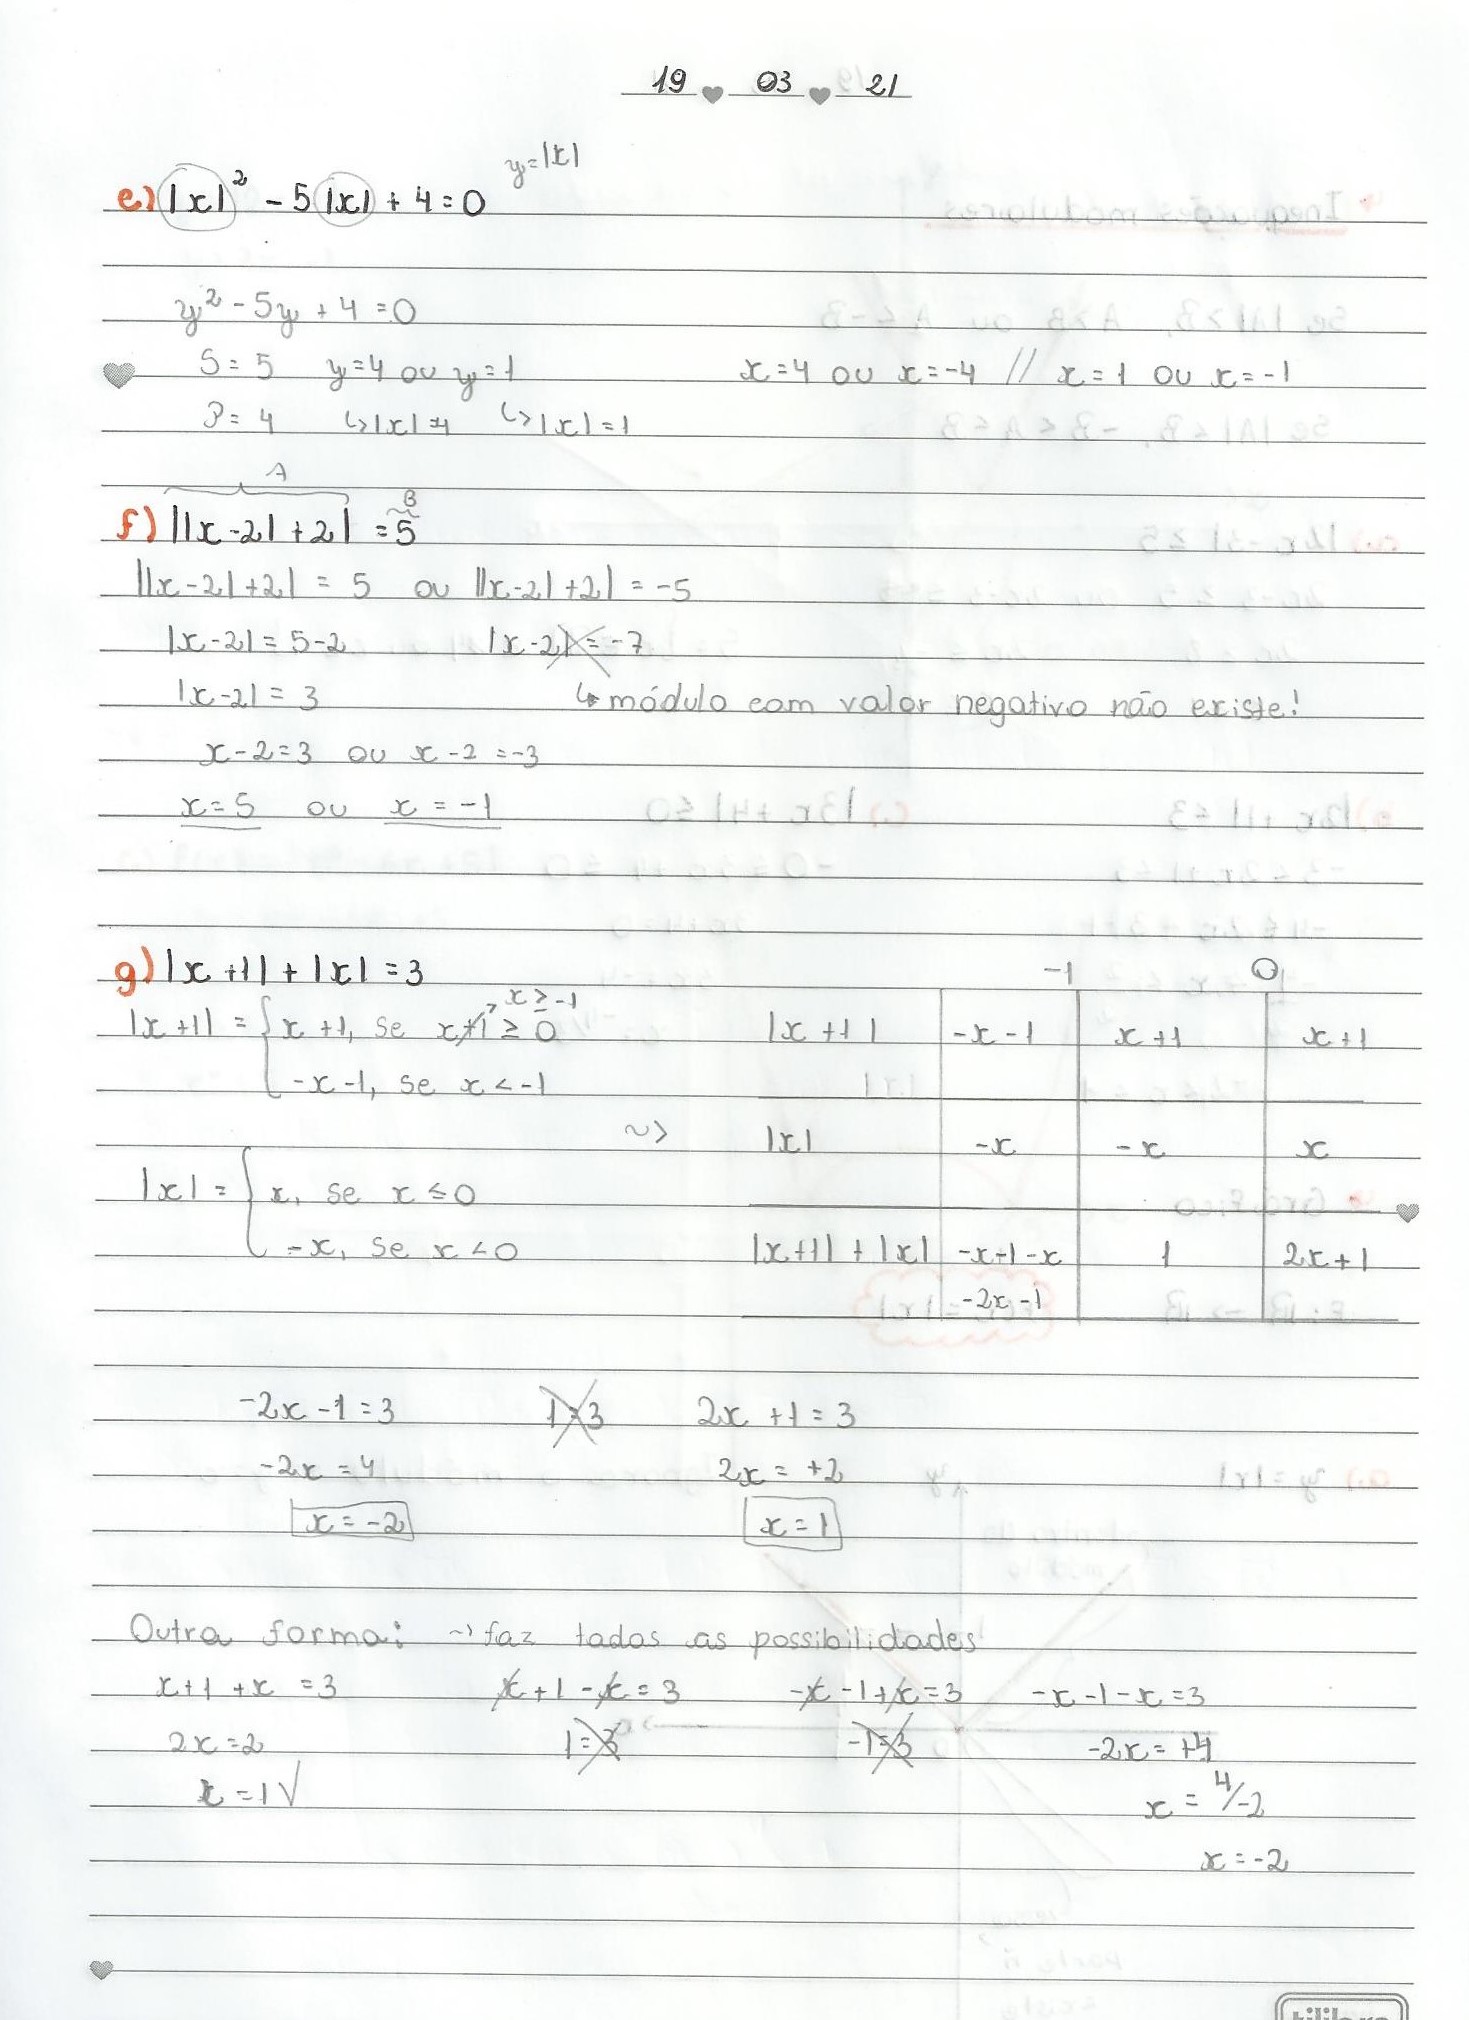 19 03 21
y=|x|
e) |x|² - 5|x| + 4 = 0
y² - 5y + 4 = 0
S = 5 y=4 ou y=1 x=4 ou x=-4 // x=1 ou x=-1
P = 4 ↳|x|=4 ↳|x|=1
A
B
f) ||x-2|+2| = 5
||x-2|+2| = 5 ou ||x-2|+2| = -5
|x-2| = 5-2 |x-2| = -7
|x-2| = 3 ↳ módulo com valor negativo não existe!
x-2=3 ou x-2=-3
x=5 ou x=-1
g) |x+1| + |x| = 3
-1 0
x ≥ -1
|x+1| = { x+1, se x+1 ≥ 0 |x+1| -x-1 x+1 x+1
-x-1, se x < -1
~> |x| -x -x x
|x| = { x, se x ≤ 0
-x, se x < 0 |x+1| + |x| -x-1-x 1 2x+1
-2x-1
-2x-1=3 1=3 2x+1=3
-2x=4 2x=+2
x=-2 x=1
Outra forma: ~> faz todas as possibilidades
x+1+x=3 x+1-x=3 -x-1+x=3 -x-1-x=3
2x=2 1=3 -1=3 -2x=+4
x=1√ x=4/-2
x=-2